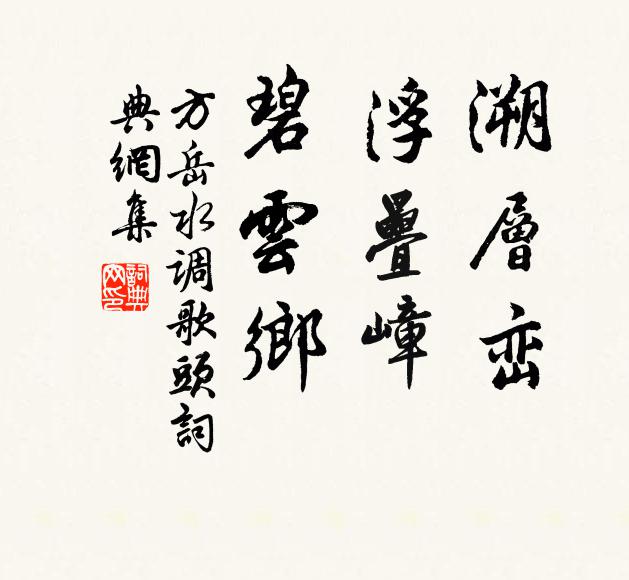 溯層峦
浮疊嶂
碧雲鄉
方岳水调歌頭詞
典網集
詞典
网印